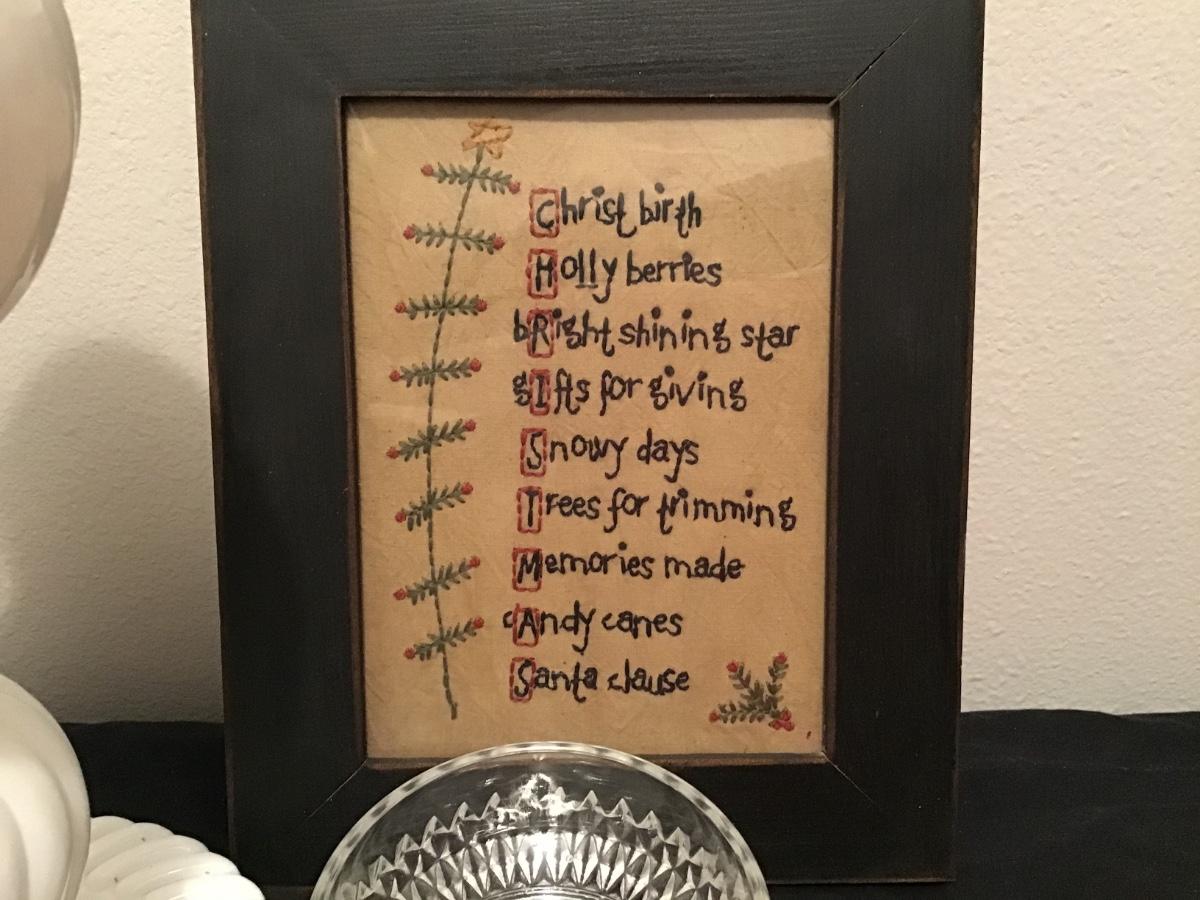 Christ birth
Holly berries
bRight shining star
gIfts for giving
Snowy days
Trees for trimming
Memories made
cAndy canes
Santa clause